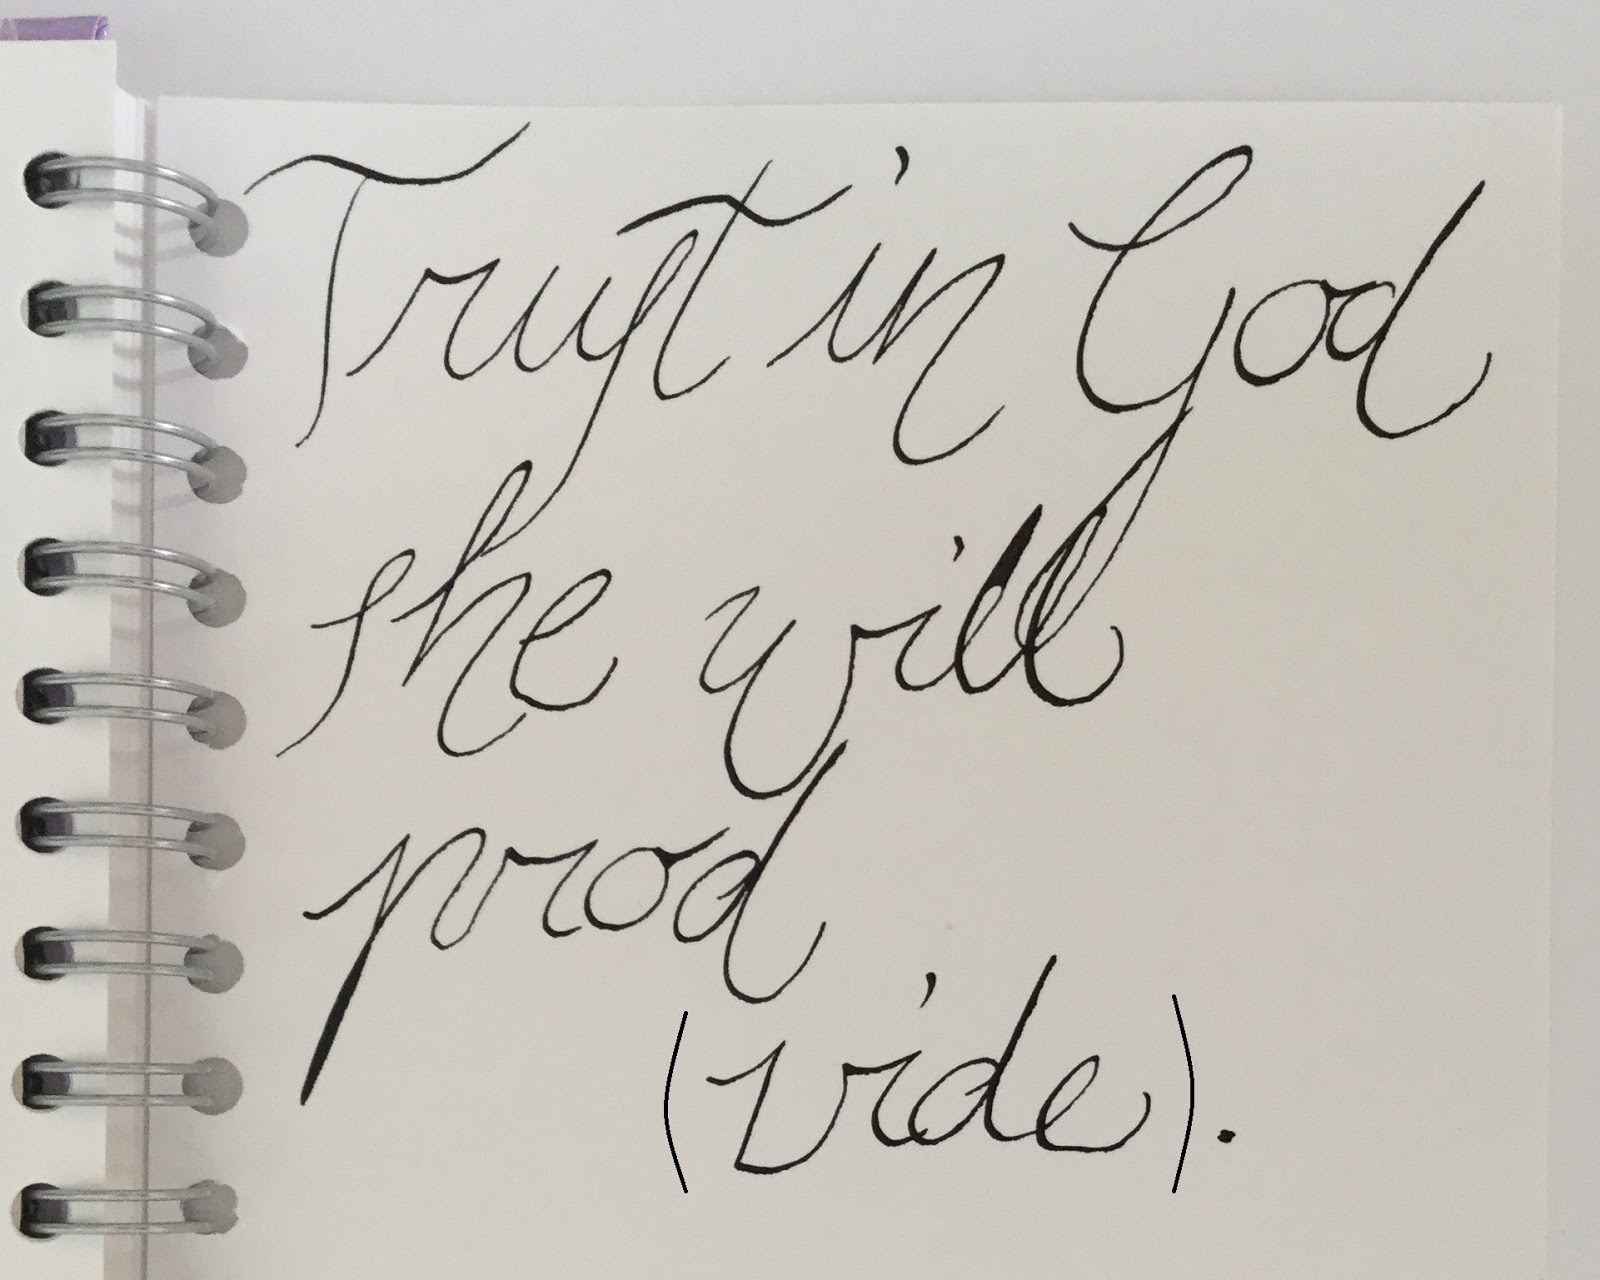 Trust in God
she will
prod
(vide).